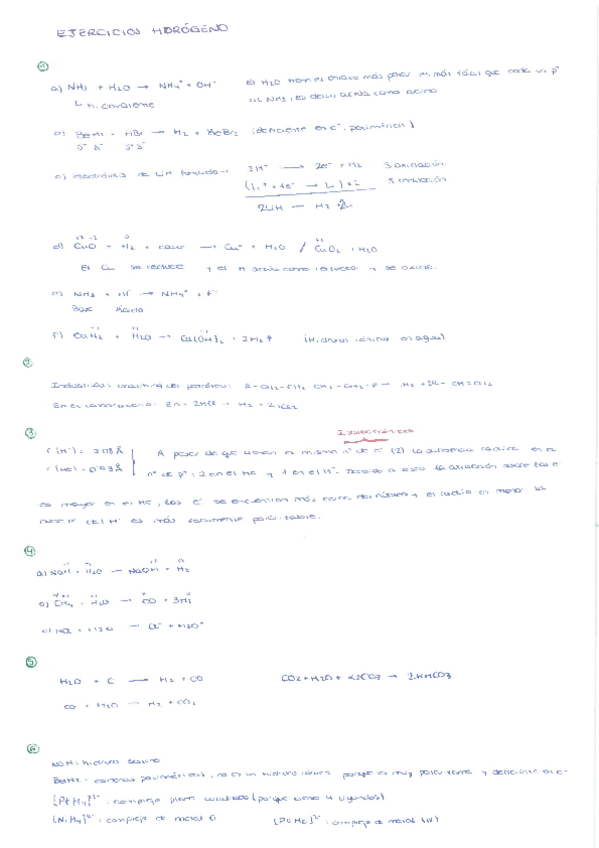 EJERCICIOS HIDRÓGENO
1
a) NH3 + H2O → NH4+ + OH-
H. covalente
b) BeH2 + HBr → H2 + BeBr2 (deficiente en e-, polimérico)
c) electrólisis de LiH fundido → 2H- → 2e- + H2 S oxidación
(Li+ + 1e- → Li) x 2 S reducción
2LiH → H2
d) CuO + H2 + calor → Cu + H2O / CuO2 + H2O
El Cu se reduce y el H actúa como reductor y se oxida.
e) NH3 + → NH4+ +
Base
f) CaH2 + H2O → Ca(OH)2 + 2H2↑ (Hidruros iónicos en agua)
2
Industrial: cracking del petróleo: R-CH2-CH2 → H2 + CH=CH2
En el laboratorio: Zn + 2HCl → H2 + ZnCl2
3
Isoelectrónicos
r(H-) = 2'08 Å A pesar de que tienen el mismo nº de e- (2) la diferencia radica en el
r(He) = 0'93 Å nº de p+: 2 en el He y 1 en el H-. Debido a esto la atracción sobre los e-
es mayor en el He, los e- se encuentran más cerca del núcleo y el radio es menor
El H- es más fácilmente polarizable.
4
a) NaH + H2O → NaOH + H2
b) CH4 + H2O → CO + 3H2
c) HCl + H2O → Cl- + H3O+
5
H2O + C → H2 + CO CO2 + H2O + K2CO3 → 2KHCO3
CO + H2O → H2 + CO2
6
NaH: hidruro salino
BeH2: covalente polimérico, no es un hidruro iónico porque es muy polarizante y deficiente en e-
[PtH4]2-: complejo plano cuadrado (porque tiene 4 ligandos)
[NiH4]: complejo de metal 0 complejo de metal (IV)